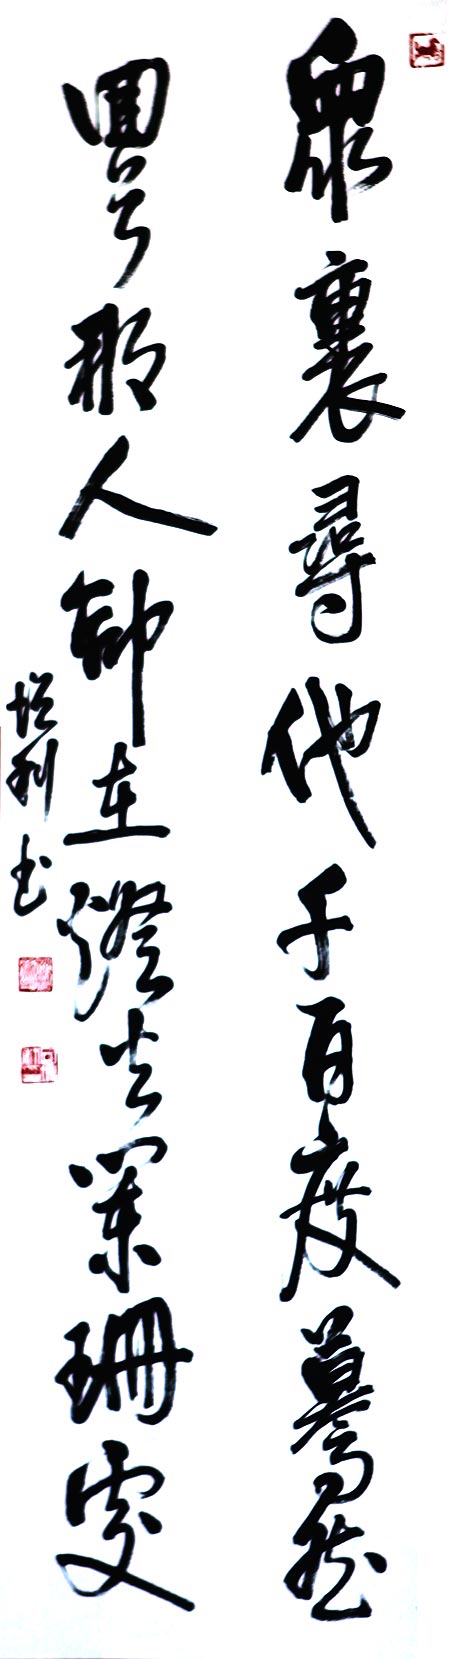 眾裏尋他千百度驀然
回首那人卻在燈火闌珊處
增利书